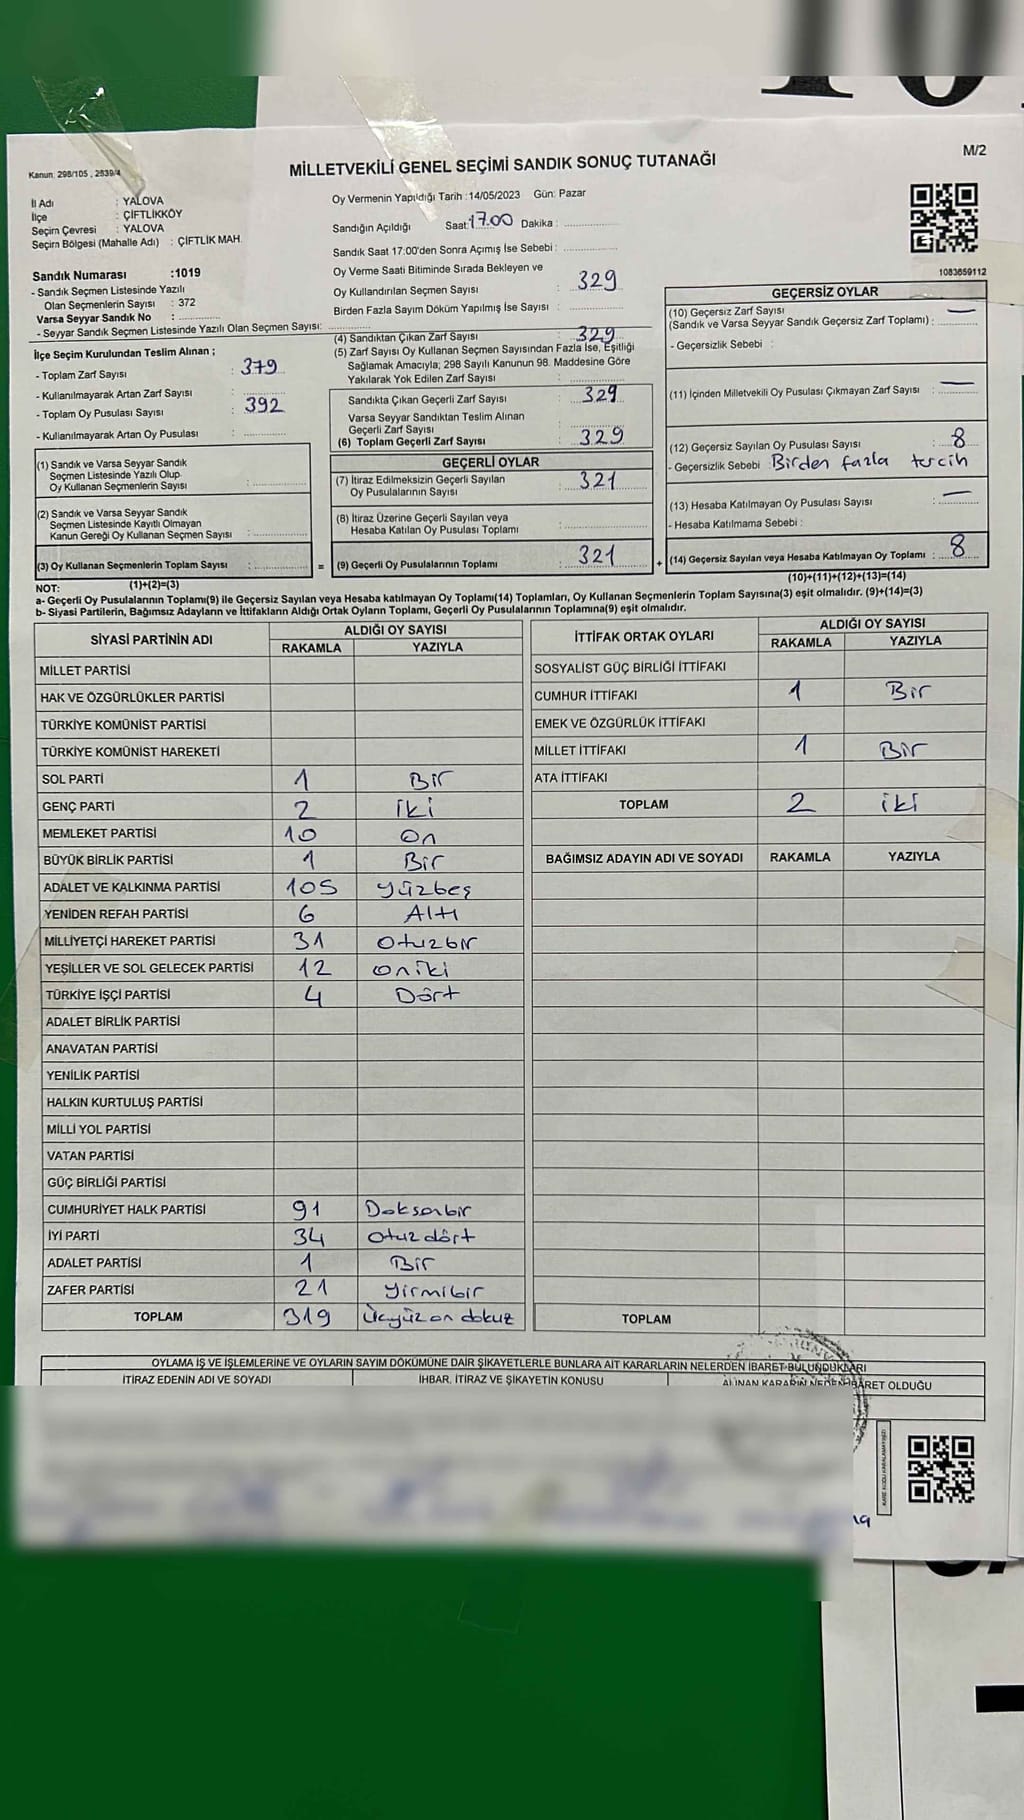 M/2
Kanun: 298/105 , 2839/4
MİLLETVEKİLİ GENEL SEÇİMİ SANDIK SONUÇ TUTANAĞI
İl Adı : YALOVA
İlçe : ÇİFTLİKKÖY
Seçim Çevresi : YALOVA
Seçim Bölgesi (Mahalle Adı) : ÇİFTLİK MAH.
Sandık Numarası :1019
- Sandık Seçmen Listesinde Yazılı
Olan Seçmenlerin Sayısı : 372
Varsa Seyyar Sandık No :
- Seyyar Sandık Seçmen Listesinde Yazılı Olan Seçmen Sayısı:
İlçe Seçim Kurulundan Teslim Alınan ;
- Toplam Zarf Sayısı : 379
- Kullanılmayarak Artan Zarf Sayısı :
- Toplam Oy Pusulası Sayısı : 392
- Kullanılmayarak Artan Oy Pusulası :
(1) Sandık ve Varsa Seyyar Sandık
Seçmen Listesinde Yazılı Olup
Oy Kullanan Seçmenlerin Sayısı :
(2) Sandık ve Varsa Seyyar Sandık
Seçmen Listesinde Kayıtlı Olmayan
Kanun Gereği Oy Kullanan Seçmen Sayısı :
(3) Oy Kullanan Seçmenlerin Toplam Sayısı :
(1)+(2)=(3)
Oy Vermenin Yapıldığı Tarih :14/05/2023 Gün: Pazar
Sandığın Açıldığı Saat:17.00 Dakika :
Sandık Saat 17:00'den Sonra Açımış İse Sebebi :
Oy Verme Saati Bitiminde Sırada Bekleyen ve
Oy Kullandırılan Seçmen Sayısı : 329
Birden Fazla Sayım Döküm Yapılmış İse Sayısı :
(4) Sandıktan Çıkan Zarf Sayısı : 329
(5) Zarf Sayısı Oy Kullanan Seçmen Sayısından Fazla İse, Eşitliği
Sağlamak Amacıyla, 298 Sayılı Kanunun 98. Maddesine Göre
Yakılarak Yok Edilen Zarf Sayısı :
Sandıkta Çıkan Geçerli Zarf Sayısı : 329
Varsa Seyyar Sandıktan Teslim Alınan
Geçerli Zarf Sayısı :
(6) Toplam Geçerli Zarf Sayısı : 329
GEÇERLİ OYLAR
(7) İtiraz Edilmeksizin Geçerli Sayılan
Oy Pusulalarının Sayısı : 321
(8) İtiraz Üzerine Geçerli Sayılan veya
Hesaba Katılan Oy Pusulası Toplamı :
= (9) Geçerli Oy Pusulalarının Toplamı : 321
1083659112
GEÇERSİZ OYLAR
(10) Geçersiz Zarf Sayısı
(Sandık ve Varsa Seyyar Sandık Geçersiz Zarf Toplamı) : —
- Geçersizlik Sebebi :
(11) İçinden Milletvekili Oy Pusulası Çıkmayan Zarf Sayısı : —
(12) Geçersiz Sayılan Oy Pusulası Sayısı : 8
- Geçersizlik Sebebi : Birden fazla tercih
(13) Hesaba Katılmayan Oy Pusulası Sayısı : —
- Hesaba Katılmama Sebebi :
+ (14) Geçersiz Sayılan veya Hesaba Katılmayan Oy Toplamı : 8
(10)+(11)+(12)+(13)=(14)
NOT:
a- Geçerli Oy Pusulalarının Toplamı(9) ile Geçersiz Sayılan veya Hesaba katılmayan Oy Toplamı(14) Toplamları, Oy Kullanan Seçmenlerin Toplam Sayısına(3) eşit olmalıdır. (9)+(14)=(3)
b- Siyasi Partilerin, Bağımsız Adayların ve İttifakların Aldığı Ortak Oyların Toplamı, Geçerli Oy Pusulalarının Toplamına(9) eşit olmalıdır.
SİYASİ PARTİNİN ADI ALDIĞI OY SAYISI
RAKAMLA YAZIYLA
MİLLET PARTİSİ
HAK VE ÖZGÜRLÜKLER PARTİSİ
TÜRKİYE KOMÜNİST PARTİSİ
TÜRKİYE KOMÜNİST HAREKETİ
SOL PARTİ 1 Bir
GENÇ PARTİ 2 iki
MEMLEKET PARTİSİ 10 on
BÜYÜK BİRLİK PARTİSİ 1 Bir
ADALET VE KALKINMA PARTİSİ 105 yüzbeş
YENİDEN REFAH PARTİSİ 6 Altı
MİLLİYETÇİ HAREKET PARTİSİ 31 otuzbir
YEŞİLLER VE SOL GELECEK PARTİSİ 12 oniki
TÜRKİYE İŞÇİ PARTİSİ 4 Dört
ADALET BİRLİK PARTİSİ
ANAVATAN PARTİSİ
YENİLİK PARTİSİ
HALKIN KURTULUŞ PARTİSİ
MİLLİ YOL PARTİSİ
VATAN PARTİSİ
GÜÇ BİRLİĞİ PARTİSİ
CUMHURİYET HALK PARTİSİ 91 Doksanbir
İYİ PARTİ 34 otuz dört
ADALET PARTİSİ 1 Bir
ZAFER PARTİSİ 21 yirmibir
TOPLAM 319 Üçyüz on dokuz
İTTİFAK ORTAK OYLARI ALDIĞI OY SAYISI
RAKAMLA YAZIYLA
SOSYALİST GÜÇ BİRLİĞİ İTTİFAKI
CUMHUR İTTİFAKI 1 Bir
EMEK VE ÖZGÜRLÜK İTTİFAKI
MİLLET İTTİFAKI 1 Bir
ATA İTTİFAKI
TOPLAM 2 iki
BAĞIMSIZ ADAYIN ADI VE SOYADI RAKAMLA YAZIYLA
TOPLAM
OYLAMA İŞ VE İŞLEMLERİNE VE OYLARIN SAYIM DÖKÜMÜNE DAİR ŞİKAYETLERLE BUNLARA AİT KARARLARIN NELERDEN İBARET BULUNDUKLARI
İTİRAZ EDENİN ADI VE SOYADI İHBAR, İTİRAZ VE ŞİKAYETİN KONUSU ALINAN KARARIN NEDEN İBARET OLDUĞU